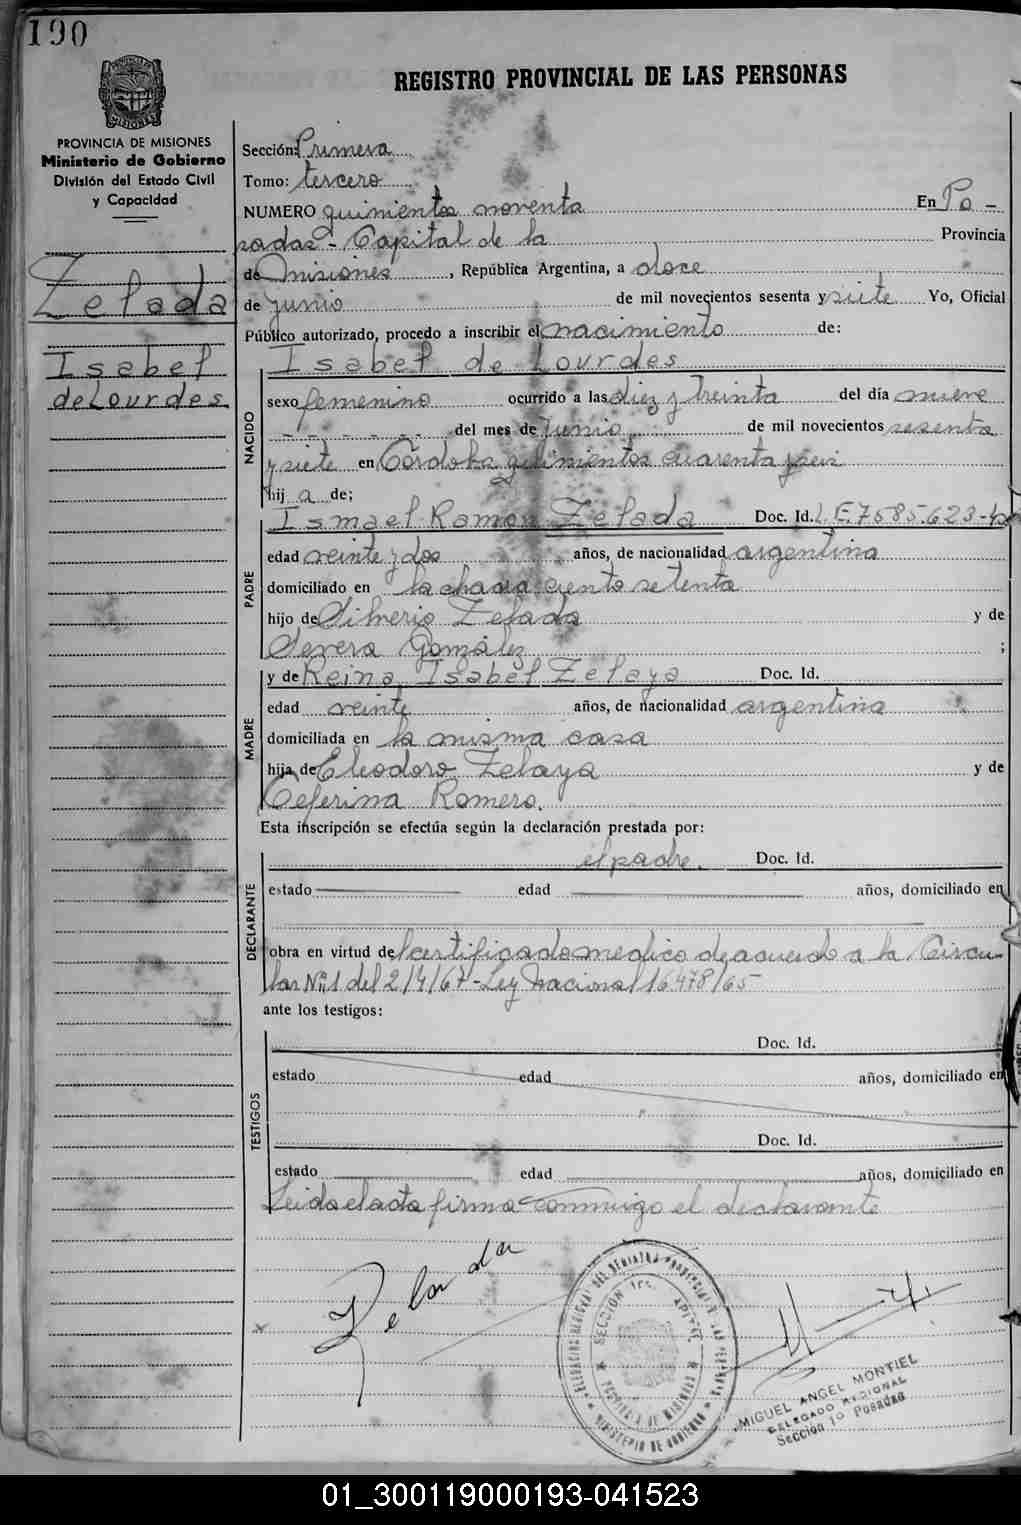 190
REGISTRO PROVINCIAL DE LAS PERSONAS
PROVINCIA DE MISIONES
Ministerio de Gobierno
División del Estado Civil
y Capacidad
Zelada
Isabel
de Lourdes
Sección: Primera
Tomo: tercero
NUMERO quinientos noventa En Po-
sadas - Capital de la Provincia
de Misiones, República Argentina, a doce
de junio de mil novecientos sesenta y siete Yo, Oficial
Público autorizado, procedo a inscribir el nacimiento de:
Isabel de Lourdes
NACIDO
sexo femenino ocurrido a las diez y treinta del día nueve
del mes de junio de mil novecientos sesenta
y siete en Córdoba quinientos cuarenta y seis
hij a de;
PADRE
Ismael Ramón Zelada Doc. Id. L.E. 7585.623
edad veinte y dos años, de nacionalidad argentina
domiciliado en la chacra ciento setenta
hijo de Silverio Zelada y de
Severa González ;
MADRE
y de Reina Isabel Zelaya Doc. Id.
edad veinte años, de nacionalidad argentina
domiciliada en la misma casa
hija de Eleodoro Zelaya y de
Ceferina Romero.
Esta inscripción se efectúa según la declaración prestada por:
DECLARANTE
el padre. Doc. Id.
estado edad años, domiciliado en
obra en virtud del certificado medico de acuerdo a la Circu-
lar Nº 1 del 2/4/67 - Ley Nacional 16478/65
ante los testigos:
TESTIGOS
Doc. Id.
estado edad años, domiciliado en
Doc. Id.
estado edad años, domiciliado en
Leida el acta firma conmigo el declarante
Zelada
DELEGACION REGIONAL DEL REGISTRO PROVINCIAL DE LAS PERSONAS
SECCION 1ra. CAPITAL
PROVINCIA DE MISIONES
MINISTERIO DE GOBIERNO
MIGUEL ANGEL MONTIEL
DELEGADO REGIONAL
Sección 1º Posadas
01_300119000193-041523